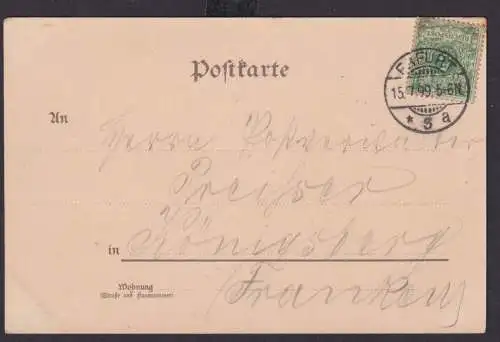 Postkarte
ERFURT
15.7.99.5-6N.
* 3 a
An
Herrn Postverwalter
Preißer
in Königsberg
Wohnung
(Straße und Hausnummer)
(Franken)